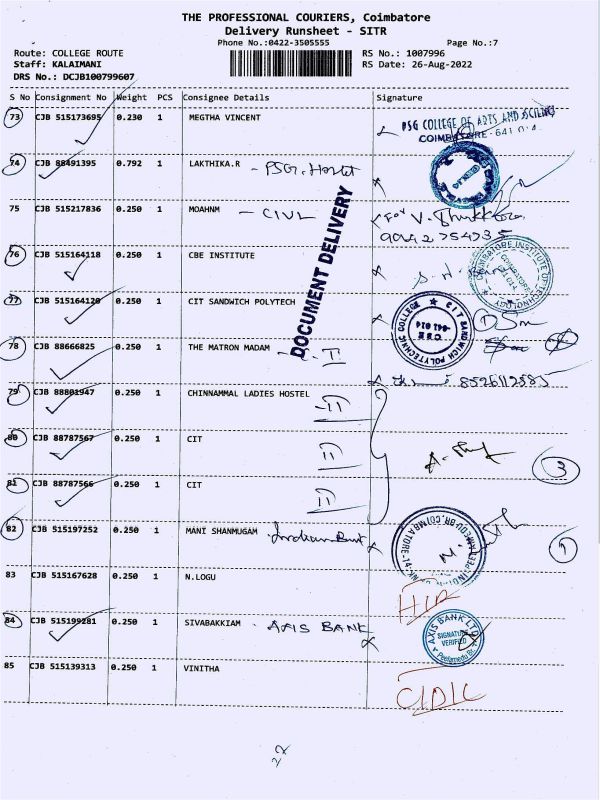 THE PROFESSIONAL COURIERS, Coimbatore
Delivery Runsheet - SITR
Phone No.:0422-3505555 Page No.:7
Route: COLLEGE ROUTE RS No.: 1007996
Staff: KALAIMANI RS Date: 26-Aug-2022
DRS No.: DCJB100799607
S No Consignment No Weight PCS Consignee Details Signature
73 CJB 515173695 0.230 1 MEGTHA VINCENT PSG COLLEGE OF ARTS AND SCIENCE
COIMBATORE - 641 014
74 CJB 88491395 0.792 1 LAKTHIKA.R - PSG. Hostel
75 CJB 515217836 0.250 1 MOAHNM - CIVL For V.
DOCUMENT DELIVERY
76 CJB 515164118 0.250 1 CBE INSTITUTE COIMBATORE INSTITUTE OF TECHNOLOGY
77 CJB 515164120 0.250 1 CIT SANDWICH POLYTECH CIT SANDWICH POLYTECHNIC COLLEGE
CBE -641 014
78 CJB 88666825 0.250 1 THE MATRON MADAM
79 CJB 88801947 0.250 1 CHINNAMMAL LADIES HOSTEL - II
80 CJB 88787567 0.250 1 CIT II 3
81 CJB 88787566 0.250 1 CIT II
82 CJB 515197252 0.250 1 MANI SHANMUGAM - Indian Bank
83 CJB 515167628 0.250 1 N.LOGU
84 CJB 515199281 0.250 1 SIVABAKKIAM - AXIS BANK AXIS BANK LTD
SIGNATURE VERIFIED
Peelamedu Br.
85 CJB 515139313 0.250 1 VINITHA